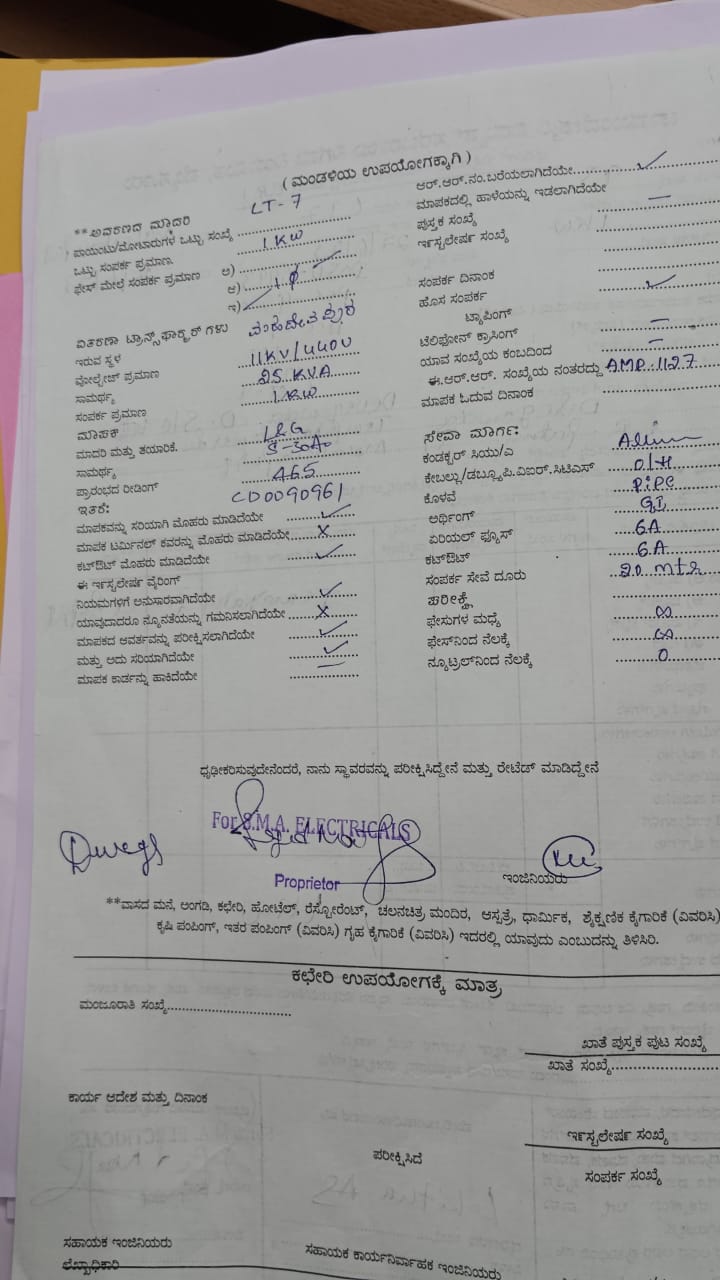 ( ಮಂಡಳಿಯ ಉಪಯೋಗಕ್ಕಾಗಿ )
**ಆವರಣದ ಮಾದರಿ LT-7
ಪಾಯಿಂಟು/ಮೋಟಾರುಗಳ ಒಟ್ಟು ಸಂಖ್ಯೆ
ಒಟ್ಟು ಸಂಪರ್ಕ ಪ್ರಮಾಣ 1 KW
ಫೇಸ್ ಮೇಲೆ ಸಂಪರ್ಕ ಪ್ರಮಾಣ ಅ)
ಆ) 1 φ
ಇ)
ವಿತರಣಾ ಟ್ರಾನ್ಸ್‌ಫಾರ್‍ಮರ್ ಗಳು
ಇರುವ ಸ್ಥಳ
ವೋಲ್ಟೇಜ್ ಪ್ರಮಾಣ 11KV/440V
ಸಾಮರ್ಥ್ಯ 25 KVA
ಸಂಪರ್ಕ ಪ್ರಮಾಣ 1 KW
ಮಾಪಕ
ಮಾದರಿ ಮತ್ತು ತಯಾರಿಕೆ. L&G
ಸಾಮರ್ಥ್ಯ 5-30A
ಪ್ರಾರಂಭದ ರೀಡಿಂಗ್ 465
ಇತರೆ: CD0090961
ಮಾಪಕವನ್ನು ಸರಿಯಾಗಿ ಮೊಹರು ಮಾಡಿದೆಯೇ ✓
ಮಾಪಕ ಟರ್ಮಿನಲ್ ಕವರನ್ನು ಮೊಹರು ಮಾಡಿದೆಯೇ X
ಕಟ್‌ಔಟ್ ಮೊಹರು ಮಾಡಿದೆಯೇ ✓
ಈ ಇನ್ಸ್ಟಲೇಷನ್ ವೈರಿಂಗ್
ನಿಯಮಗಳಿಗೆ ಅನುಸಾರವಾಗಿದೆಯೇ ✓
ಯಾವುದಾದರೂ ನ್ಯೂನತೆಯನ್ನು ಗಮನಿಸಲಾಗಿದೆಯೇ X
ಮಾಪಕದ ಆವರ್ತವನ್ನು ಪರೀಕ್ಷಿಸಲಾಗಿದೆಯೇ ✓
ಮತ್ತು ಅದು ಸರಿಯಾಗಿದೆಯೇ ✓
ಮಾಪಕ ಕಾರ್ಡನ್ನು ಹಾಕಿದೆಯೇ —
ಆರ್.ಆರ್.ನಂ.ಬರೆಯಲಾಗಿದೆಯೇ ✓
ಮಾಪಕದಲ್ಲಿ ಹಾಳೆಯನ್ನು ಇಡಲಾಗಿದೆಯೇ —
ಪುಸ್ತಕ ಸಂಖ್ಯೆ
ಇನ್ಸ್ಟಲೇಷನ್ ಸಂಖ್ಯೆ
ಸಂಪರ್ಕ ದಿನಾಂಕ
ಹೊಸ ಸಂಪರ್ಕ ✓
ಟ್ಯಾಪಿಂಗ್
ಟೆಲಿಫೋನ್ ಕ್ರಾಸಿಂಗ್ —
ಯಾವ ಸಂಖ್ಯೆಯ ಕಂಬದಿಂದ —
ಈ.ಆರ್.ಆರ್. ಸಂಖ್ಯೆಯ ನಂತರದ್ದು AMP 1127
ಮಾಪಕ ಓದುವ ದಿನಾಂಕ
ಸೇವಾ ಮಾರ್ಗ:
ಕಂಡಕ್ಟರ್ ಸಿಯು/ಎ
ಕೇಬಲ್ಲು/ಡಬ್ಲ್ಯೂಪಿ.ವಿಐಆರ್.ಸಿಟಿಎಸ್ O/H
ಕೊಳವೆ PiPe
ಅರ್ಥಿಂಗ್ GI
ಏರಿಯಲ್ ಫ್ಯೂಸ್ 6A
ಕಟ್‌ಔಟ್ 6A
ಸಂಪರ್ಕ ಸೇವೆ ದೂರು 20 mts
ಪರೀಕ್ಷೆ
ಫೇಸುಗಳ ಮಧ್ಯೆ ∞
ಫೇಸ್‌ನಿಂದ ನೆಲಕ್ಕೆ ∞
ನ್ಯೂಟ್ರಲ್‌ನಿಂದ ನೆಲಕ್ಕೆ 0
ಧೃಢೀಕರಿಸುವುದೇನೆಂದರೆ, ನಾನು ಸ್ಥಾವರವನ್ನು ಪರೀಕ್ಷಿಸಿದ್ದೇನೆ ಮತ್ತು ರೇಟೆಡ್ ಮಾಡಿದ್ದೇನೆ
For S.M.A. ELECTRICALS
Proprietor
ಇಂಜಿನಿಯರು
**ವಾಸದ ಮನೆ, ಅಂಗಡಿ, ಕಛೇರಿ, ಹೋಟೆಲ್, ರೆಸ್ಟೋರೆಂಟ್, ಚಲನಚಿತ್ರ ಮಂದಿರ, ಆಸ್ಪತ್ರೆ, ಧಾರ್ಮಿಕ, ಶೈಕ್ಷಣಿಕ ಕೈಗಾರಿಕೆ (ವಿವರಿಸಿ)
ಕೃಷಿ ಪಂಪಿಂಗ್, ಇತರ ಪಂಪಿಂಗ್ (ವಿವರಿಸಿ) ಗೃಹ ಕೈಗಾರಿಕೆ (ವಿವರಿಸಿ) ಇದರಲ್ಲಿ ಯಾವುದು ಎಂಬುದನ್ನು ತಿಳಿಸಿರಿ.
ಕಛೇರಿ ಉಪಯೋಗಕ್ಕೆ ಮಾತ್ರ
ಮಂಜೂರಾತಿ ಸಂಖ್ಯೆ
ಖಾತೆ ಪುಸ್ತಕ ಪುಟ ಸಂಖ್ಯೆ
ಖಾತೆ ಸಂಖ್ಯೆ
ಕಾರ್ಯ ಆದೇಶ ಮತ್ತು ದಿನಾಂಕ
ಇನ್ಸ್ಟಲೇಷನ್ ಸಂಖ್ಯೆ
ಪರೀಕ್ಷಿಸಿದೆ
ಸಂಪರ್ಕ ಸಂಖ್ಯೆ
ಸಹಾಯಕ ಇಂಜಿನಿಯರು
ಸಹಾಯಕ ಕಾರ್ಯನಿರ್ವಾಹಕ ಇಂಜಿನಿಯರು
ಲೆಖ್ಖಾಧಿಕಾರಿ